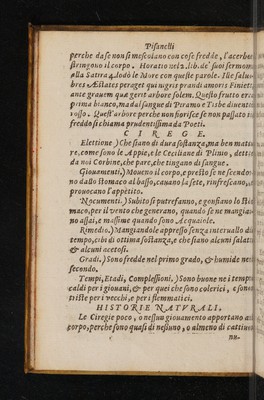 Pisanelli
perche da se non si mescolano con cose fredde, l'acerbe
stringono il corpo. Horatio nel 2. lib. de' suoi sermon
alla Satira 4. lodò le More con queste parole. Ille salu-
bres Æstates peraget qui nigris prandi amoris Finiet,
ante grauem quæ gerit arbore solem. Questo frutto era
prima bianco, ma dal sangue di Piramo e Tisbe diuentò
rosso. Quest'arbore perche non fiorisce se non passato il
freddo si chiama prudentissima da Poeti.
CIREGE.
Elettione.) Che siano di dura sostanza, ma ben matu-
re, come sono le Appie, e le Ceciliane di Plinio, dette
da noi Corbine, che pare, che tingano di sangue.
Giouamenti.) Moueno il corpo, e presto se ne scendo-
no dallo stomaco al basso, cauano la sete, rinfrescano, e
prouocano l'appetito.
Nocumenti.) Subito si putrefanno, e gonfiano lo sto
maco, per il vento che generano, quando se ne mangia-
no assai, e massime quando sono Acquiuole.
Rimedio.) Mangiandole appresso senza interuallo di
tempo, cibi di ottima sostanza, e che siano alcuni salati
& alcuni acetosi.
Gradi.) Sono fredde nel primo grado, & humide nel
secondo.
Tempi, Etadi, Complessioni.) Sono buone ne i tempi
caldi per i giouani, & per quei che sono colerici, e sono
triste per i vecchi, e per i flemmatici.
HISTORIE NATVRALI.
Le Ciregie poco, o nessun giouamento apportano al
corpo, perche sono quasi di nessuno, o almeno di cattiuo
nu-